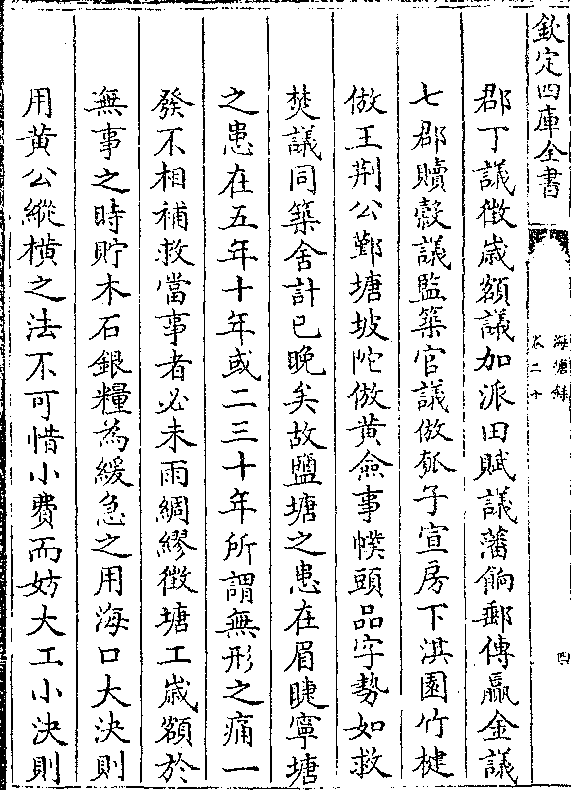 欽定四庫全書
海塘録
卷二十
四
郡丁議徴歲額議加派田賦議藩餉郵傳贏金議
七郡贖糓議監築官議倣瓠子宣房下淇園竹楗
倣王荆公鄞塘坡陀倣黄僉事幞頭品字勢如救
焚議同築舍計已晚矣故鹽塘之患在眉睫寧塘
之患在五年十年或二三十年所謂無形之痛一
發不相補救當事者必未雨綢繆徴塘工歲額於
無事之時貯木石銀糧為緩急之用海口大決則
用黄公縱横之法不可惜小費而妨大工小決則